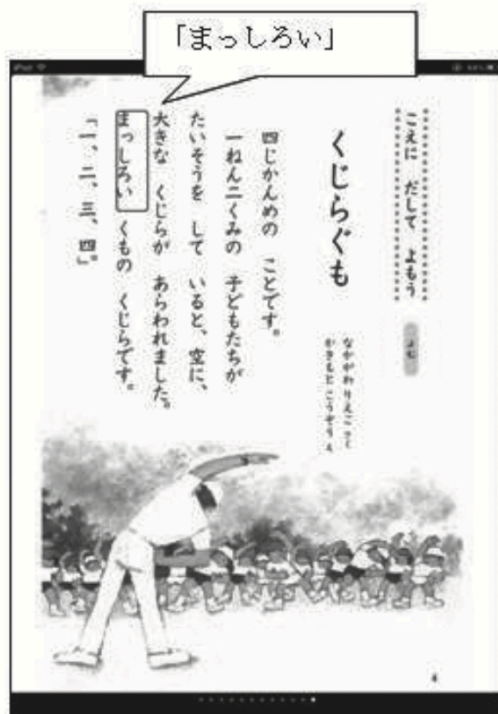 「まっしろい」
こえに だして よもう
よむ
くじらぐも
なかがわ りえこ さく
かきもと こうぞう え
四じかんめの ことです。
一ねん二くみの 子どもたちが
たいそうを して いると、空に、
大きな くじらが あらわれました。
まっしろい くもの くじらです。
「一、二、三、四。」
4